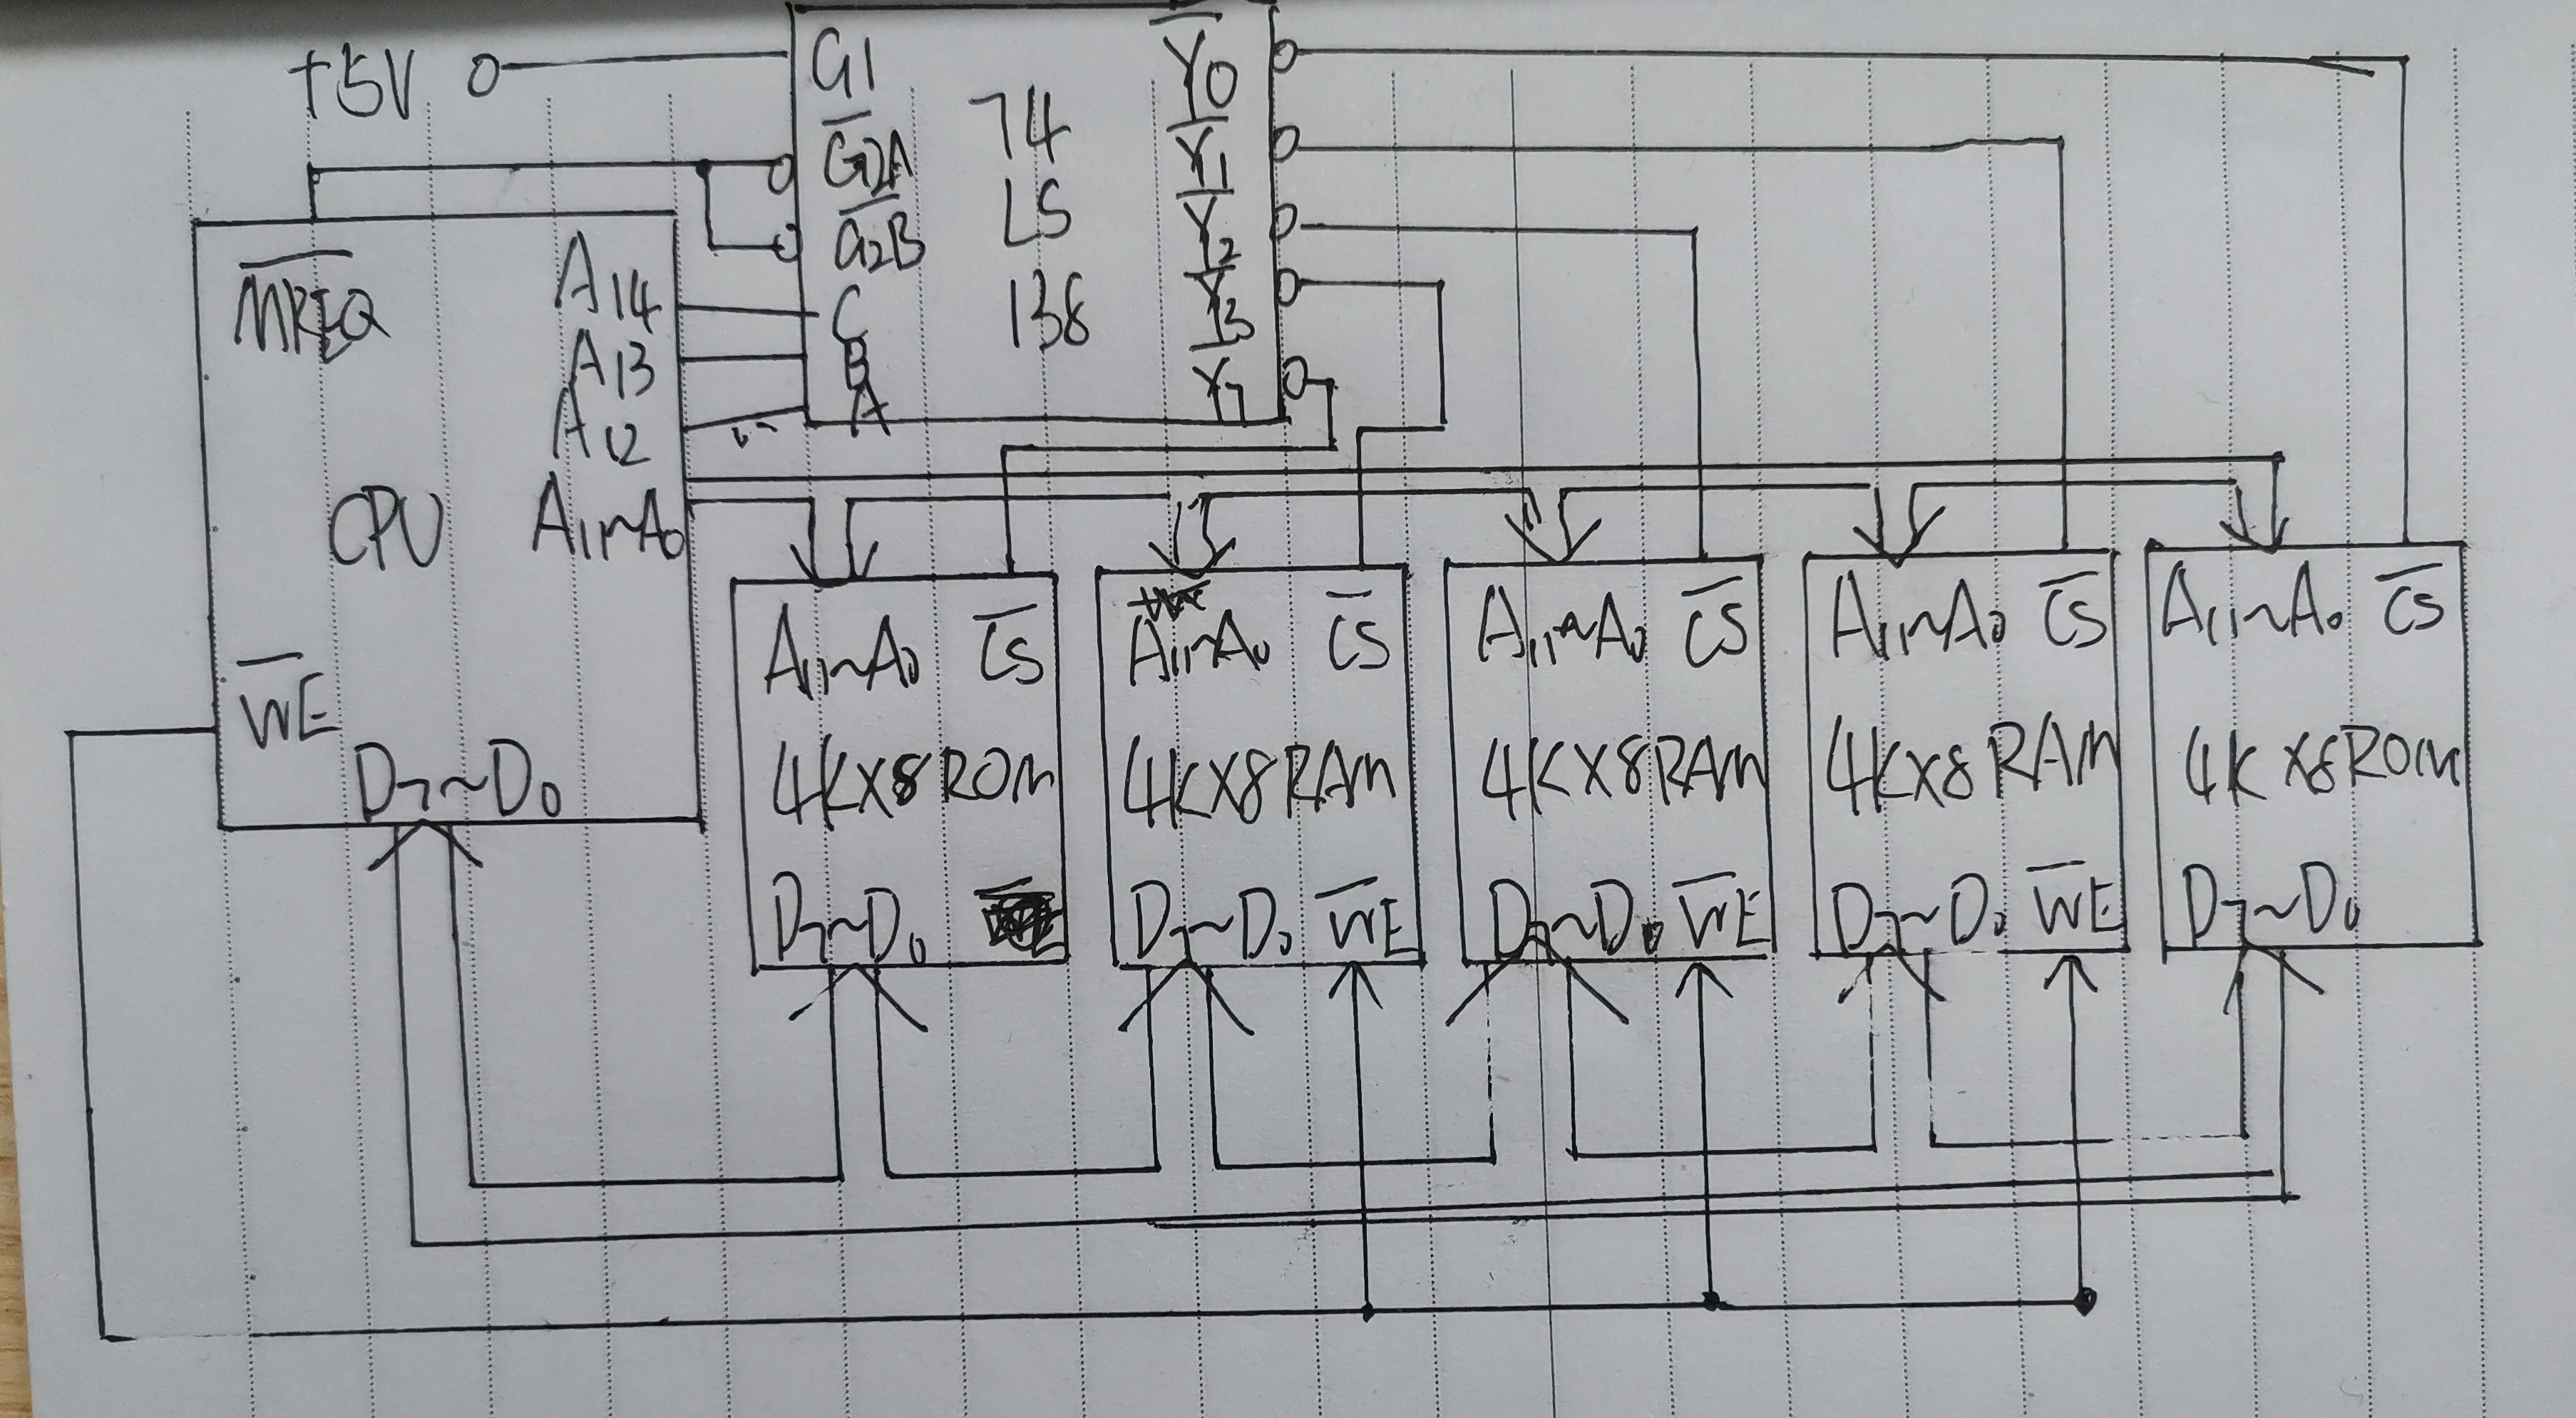 +5V
G1
G2A
G2B
C
B
A
74
LS
138
Y0
Y1
Y2
Y3
Y7
MREQ
A14
A13
A12
A11~A0
CPU
WE
D7~D0
A11~A0 CS
4K×8 ROM
D7~D0
A11~A0 CS
4K×8 RAM
D7~D0 WE
A11~A0 CS
4K×8 RAM
D7~D0 WE
A11~A0 CS
4K×8 RAM
D7~D0 WE
A11~A0 CS
4K×8 ROM
D7~D0